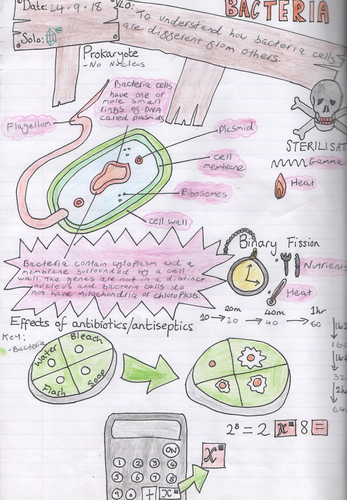 Date: 24-9-18
LO:
BACTERIA
To understand how bacteria cells
are different from others.
Solo:
Prokaryote
- No Nucleus
Bacteria cells
have one or
more small
rings of DNA
called plasmids
Flagellum
Plasmid
cell
membrane
Ribosomes
cell wall
STERILISAT
Gamma
Heat
Bacteria contain cytoplasm and a
membrane surrounded by a cell
wall. The genes are not in a distinct
nucleus and bacteria cells do
not have mitochondria or chloroplasts.
Binary Fission
Nutrients
Heat
20m 40m 1hr
10 → 20 → 40 → 80
Effects of antibiotics/antiseptics
Key:
- Bacteria
Water
Bleach
Flash
Soap
2⁸ = 2 xⁿ 8 =
ON
1 2 3
4 5 6
7 8 9
0 + xⁿ